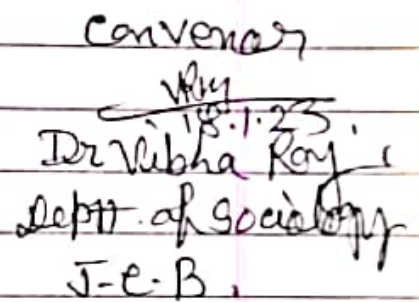 Convenor
VRoy
18.1.23.
Dr Vibha Roy
Deptt. of Sociology
J-C-B.